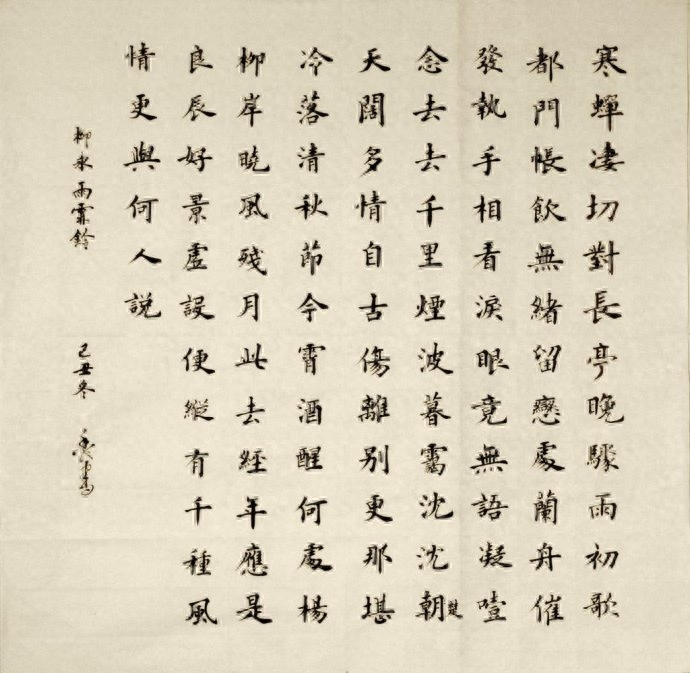 寒蟬凄切對長亭晚驟雨初歇
都門帳飲無緒留戀處蘭舟催
發執手相看淚眼竟無語凝噎
念去去千里煙波暮靄沈沈朝楚
天闊多情自古傷離別更那堪
冷落清秋節今霄酒醒何處楊
柳岸曉風殘月此去經年應是
良辰好景虛設便縱有千種風
情更與何人説
柳永雨霖鈴 己丑冬